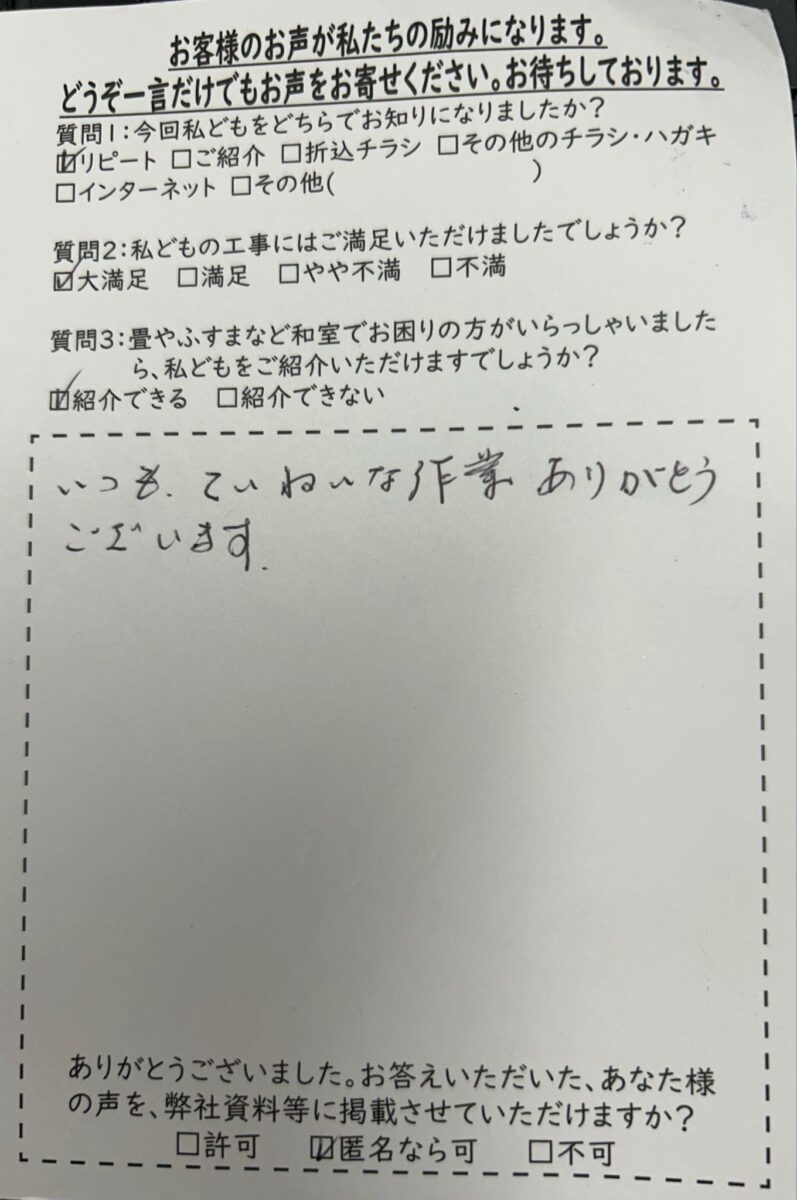 お客様のお声が私たちの励みになります。
どうぞ一言だけでもお声をお寄せください。お待ちしております。
質問1:今回私どもをどちらでお知りになりましたか?
☑リピート □ご紹介 □折込チラシ □その他のチラシ・ハガキ
□インターネット □その他( )
質問2:私どもの工事にはご満足いただけましたでしょうか?
☑大満足 □満足 □やや不満 □不満
質問3:畳やふすまなど和室でお困りの方がいらっしゃいました
ら、私どもをご紹介いただけますでしょうか?
☑紹介できる □紹介できない
いつも、ていねいな作業 ありがとう
ございます.
ありがとうございました。お答えいただいた、あなた様
の声を、弊社資料等に掲載させていただけますか?
□許可 ☑匿名なら可 □不可